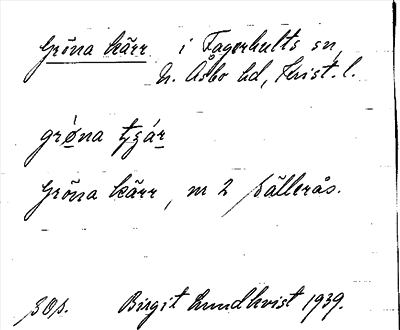 Gröna kärr i Fagerhults sn,
N. Åsbo hd, Krist. l.
grø̀na tʒár
Gröna kärr, nr 2 Källerås.
Birgit Lundkvist 1939.